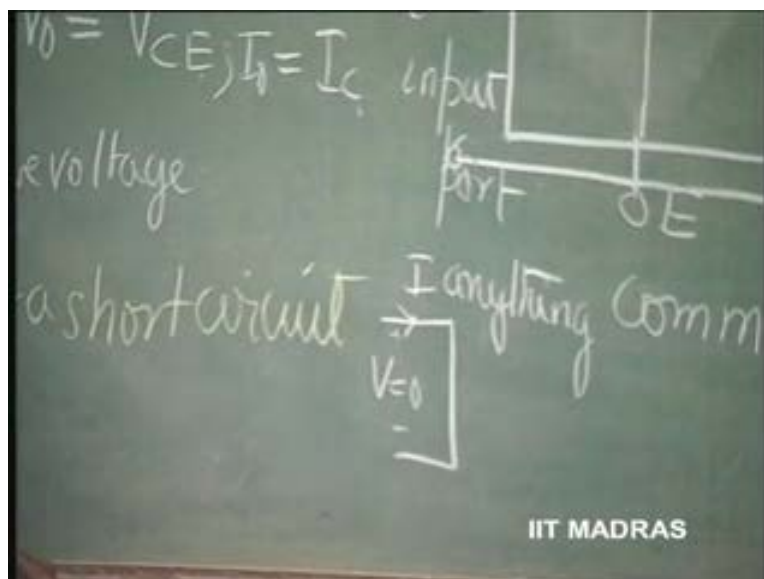 V0 = VCE; I0 = IC
input
port
E
e voltage
a short circuit
I anything
Comm
V=0
-
IIT MADRAS